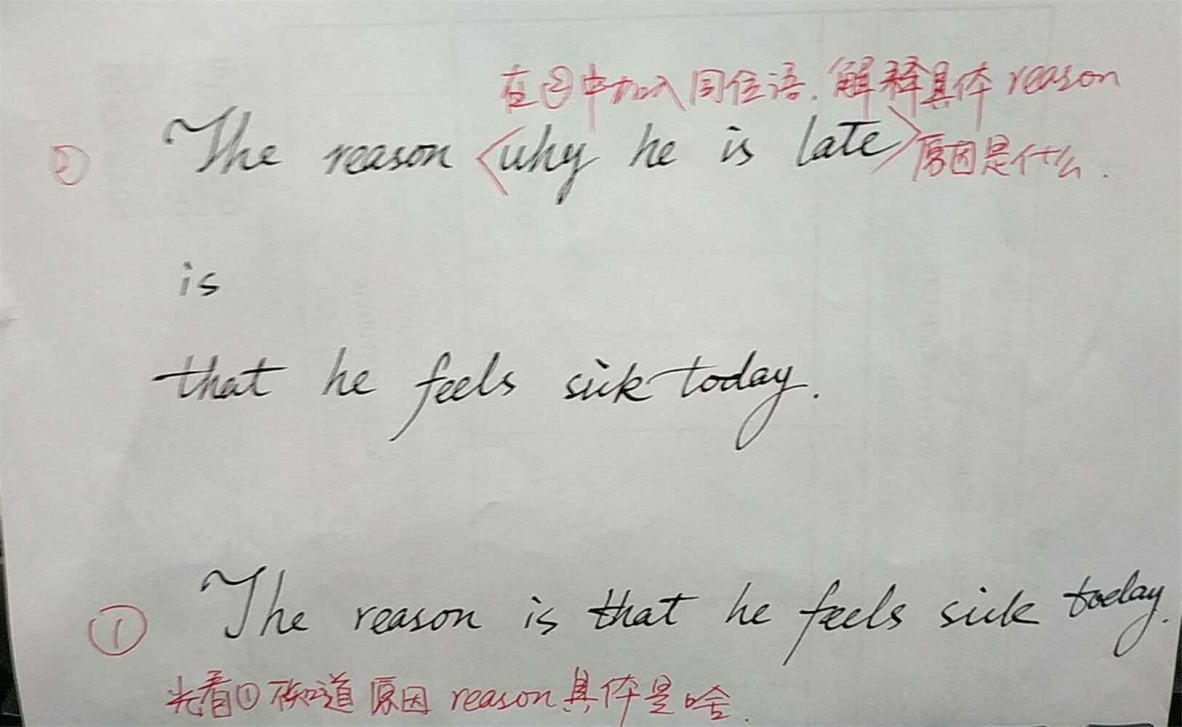 在②中加入同位语.解释具体reason
② The reason <why he is late> 原因是什么.
is
that he feels sick today.
① The reason is that he feels sick today.
先看① 不知道原因reason具体是啥.